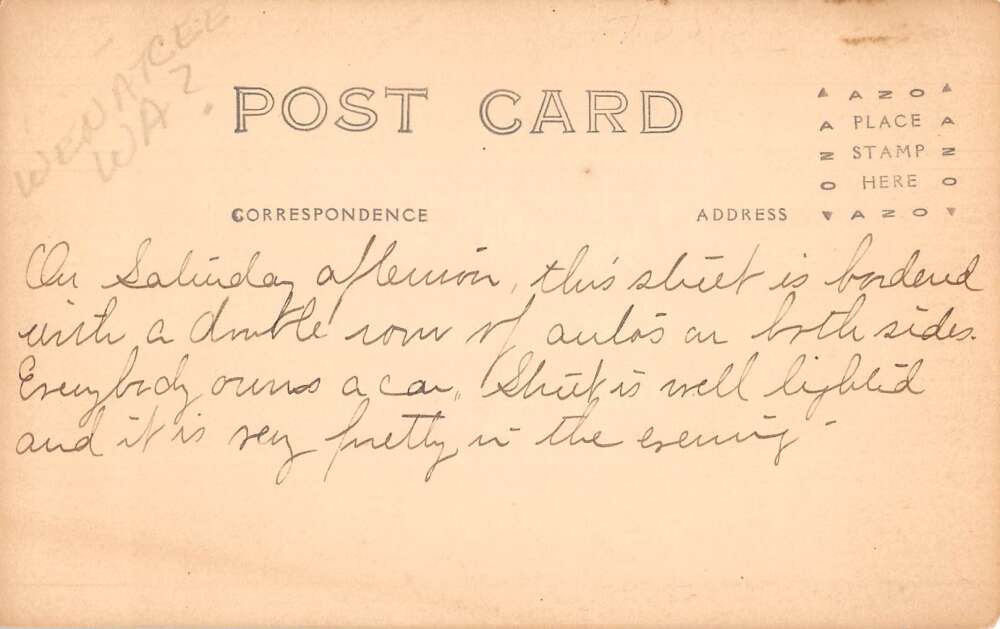 WENATCEE
WA?
POST CARD
AZO
A PLACE A
N STAMP N
O HERE O
AZO
CORRESPONDENCE ADDRESS
On Saturday afternoon, this street is bordered
with a double row of autos on both sides.
Everybody owns a car. Street is well lighted
and it is very pretty in the evening -